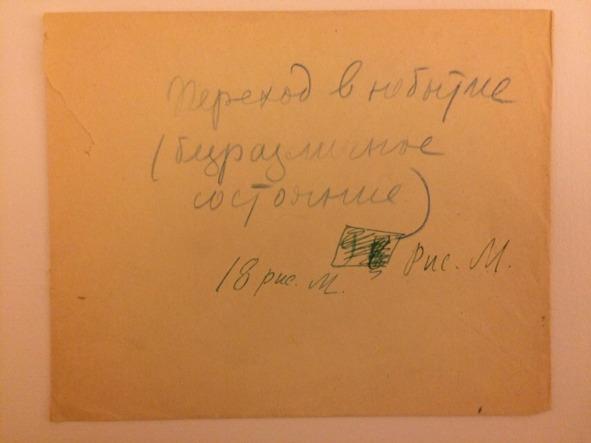 Переход в небытие
(безразличное
состояние)
Рис. М.
18 рис. М.